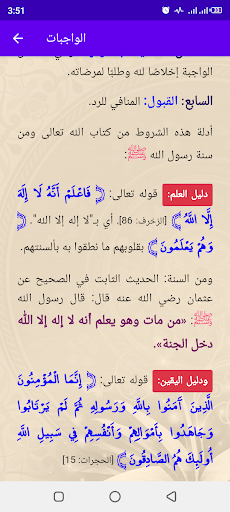 3:51
الواجبات
الواجبة إخلاصًا لله وطلبًا لمرضاته.
السابع: القبول: المنافي للرد.
أدلة هذه الشروط من كتاب الله تعالى ومن
سنة رسول الله ﷺ:
دليل العلم: قوله تعالى: ﴿فَاعْلَمْ أَنَّهُ لَا إِلَهَ
إِلَّا اللَّهُ﴾ [الزخرف: 86]. أي بـ"لا إله إلا الله".
﴿وَهُمْ يَعْلَمُونَ﴾ بقلوبهم ما نطقوا به بألسنتهم.
ومن السنة: الحديث الثابت في الصحيح عن
عثمان رضي الله عنه قال: قال رسول الله
ﷺ: «من مات وهو يعلم أنه لا إله إلا الله
دخل الجنة».
ودليل اليقين: قوله تعالى: ﴿إِنَّمَا الْمُؤْمِنُونَ
الَّذِينَ آمَنُوا بِاللَّهِ وَرَسُولِهِ ثُمَّ لَمْ يَرْتَابُوا
وَجَاهَدُوا بِأَمْوَالِهِمْ وَأَنْفُسِهِمْ فِي سَبِيلِ اللَّهِ
أُولَئِكَ هُمُ الصَّادِقُونَ﴾ [الحجرات: 15]